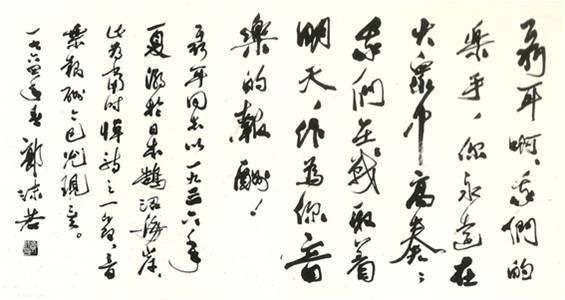 聶耳啊、我們的
樂手,你永遠在
大眾中高奏;
我們在戰取着
明天,作為你音
樂的報酬!
聶耳同志以一九三六年
夏溺於日本鵠沼海岸,
此為當時悼詩之一節,音
樂報酬今已兌現矣。
一九六四年春 郭沫若